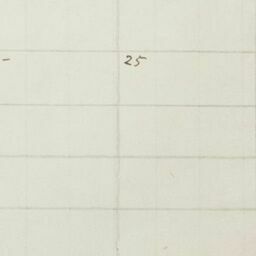 - 25